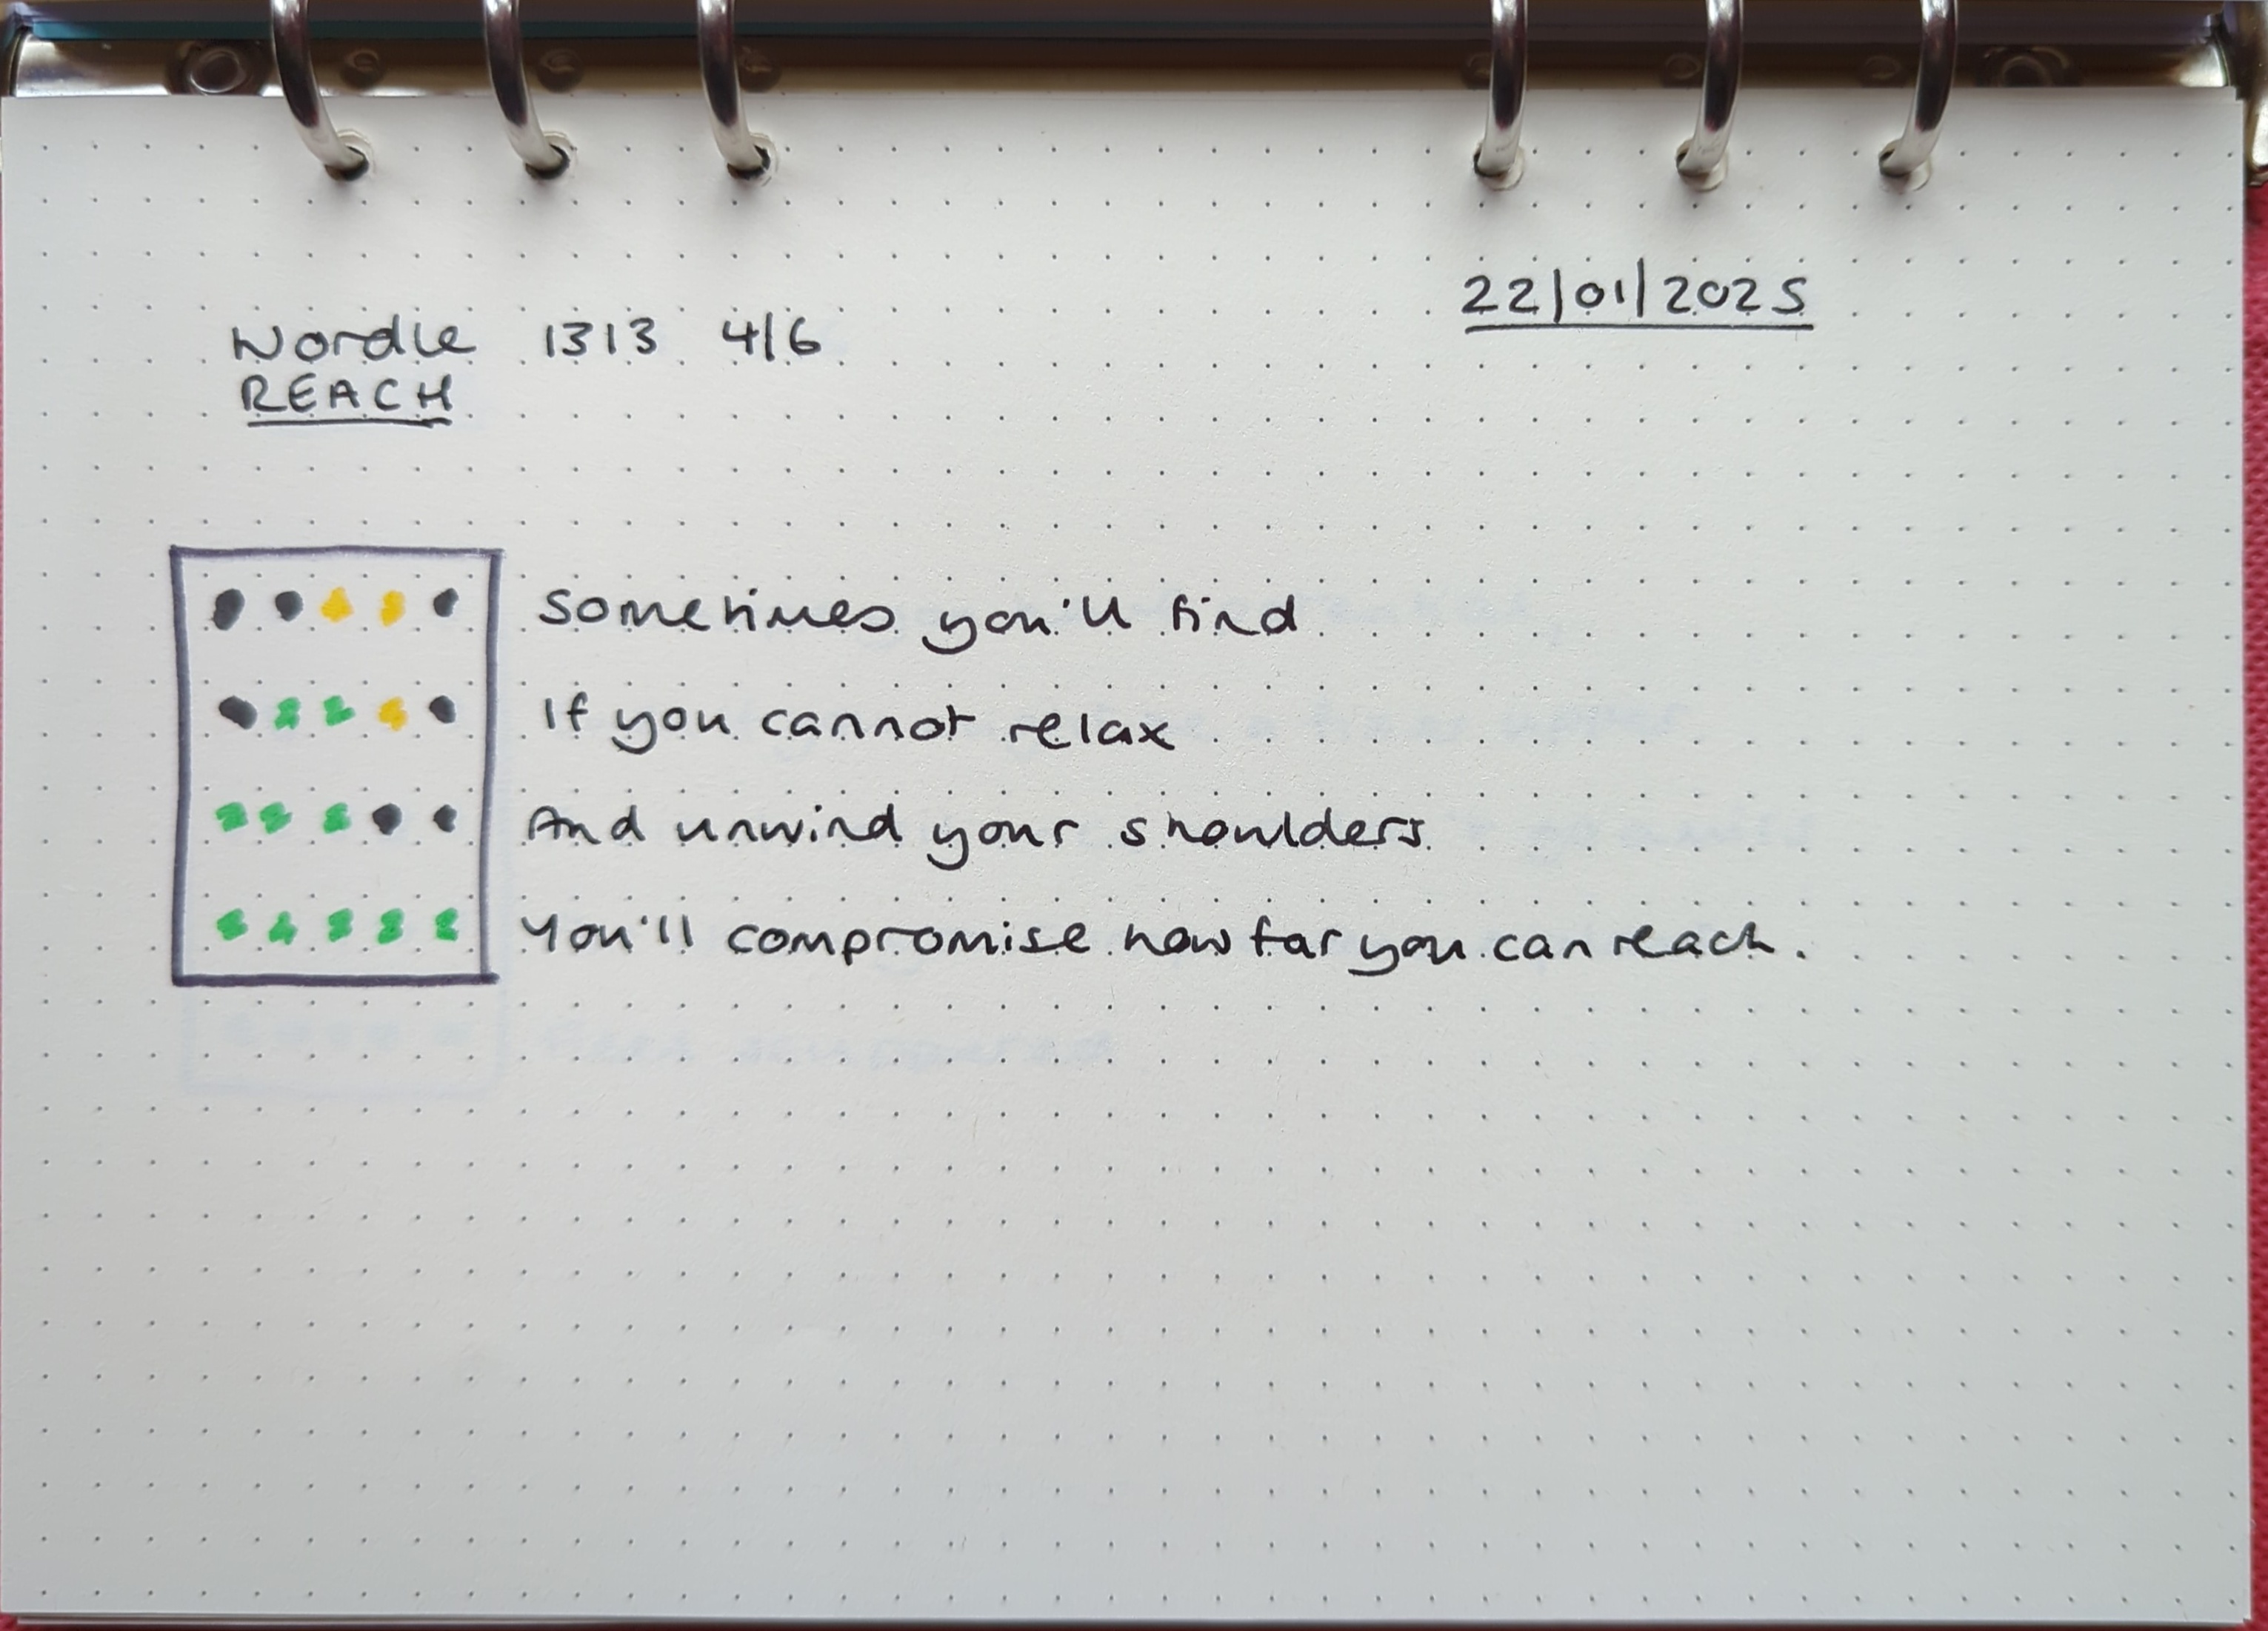 22/01/2025
Wordle 1313 4/6
REACH
Sometimes you'll find
If you cannot relax
And unwind your shoulders
You'll compromise how far you can reach.